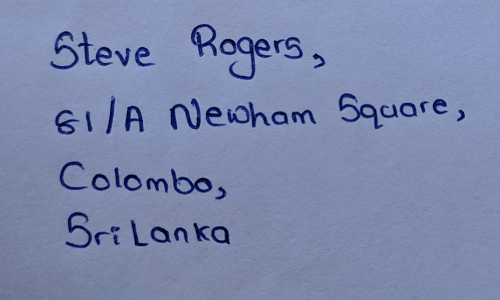 Steve Rogers,
61/A Newham Square,
Colombo,
Sri Lanka